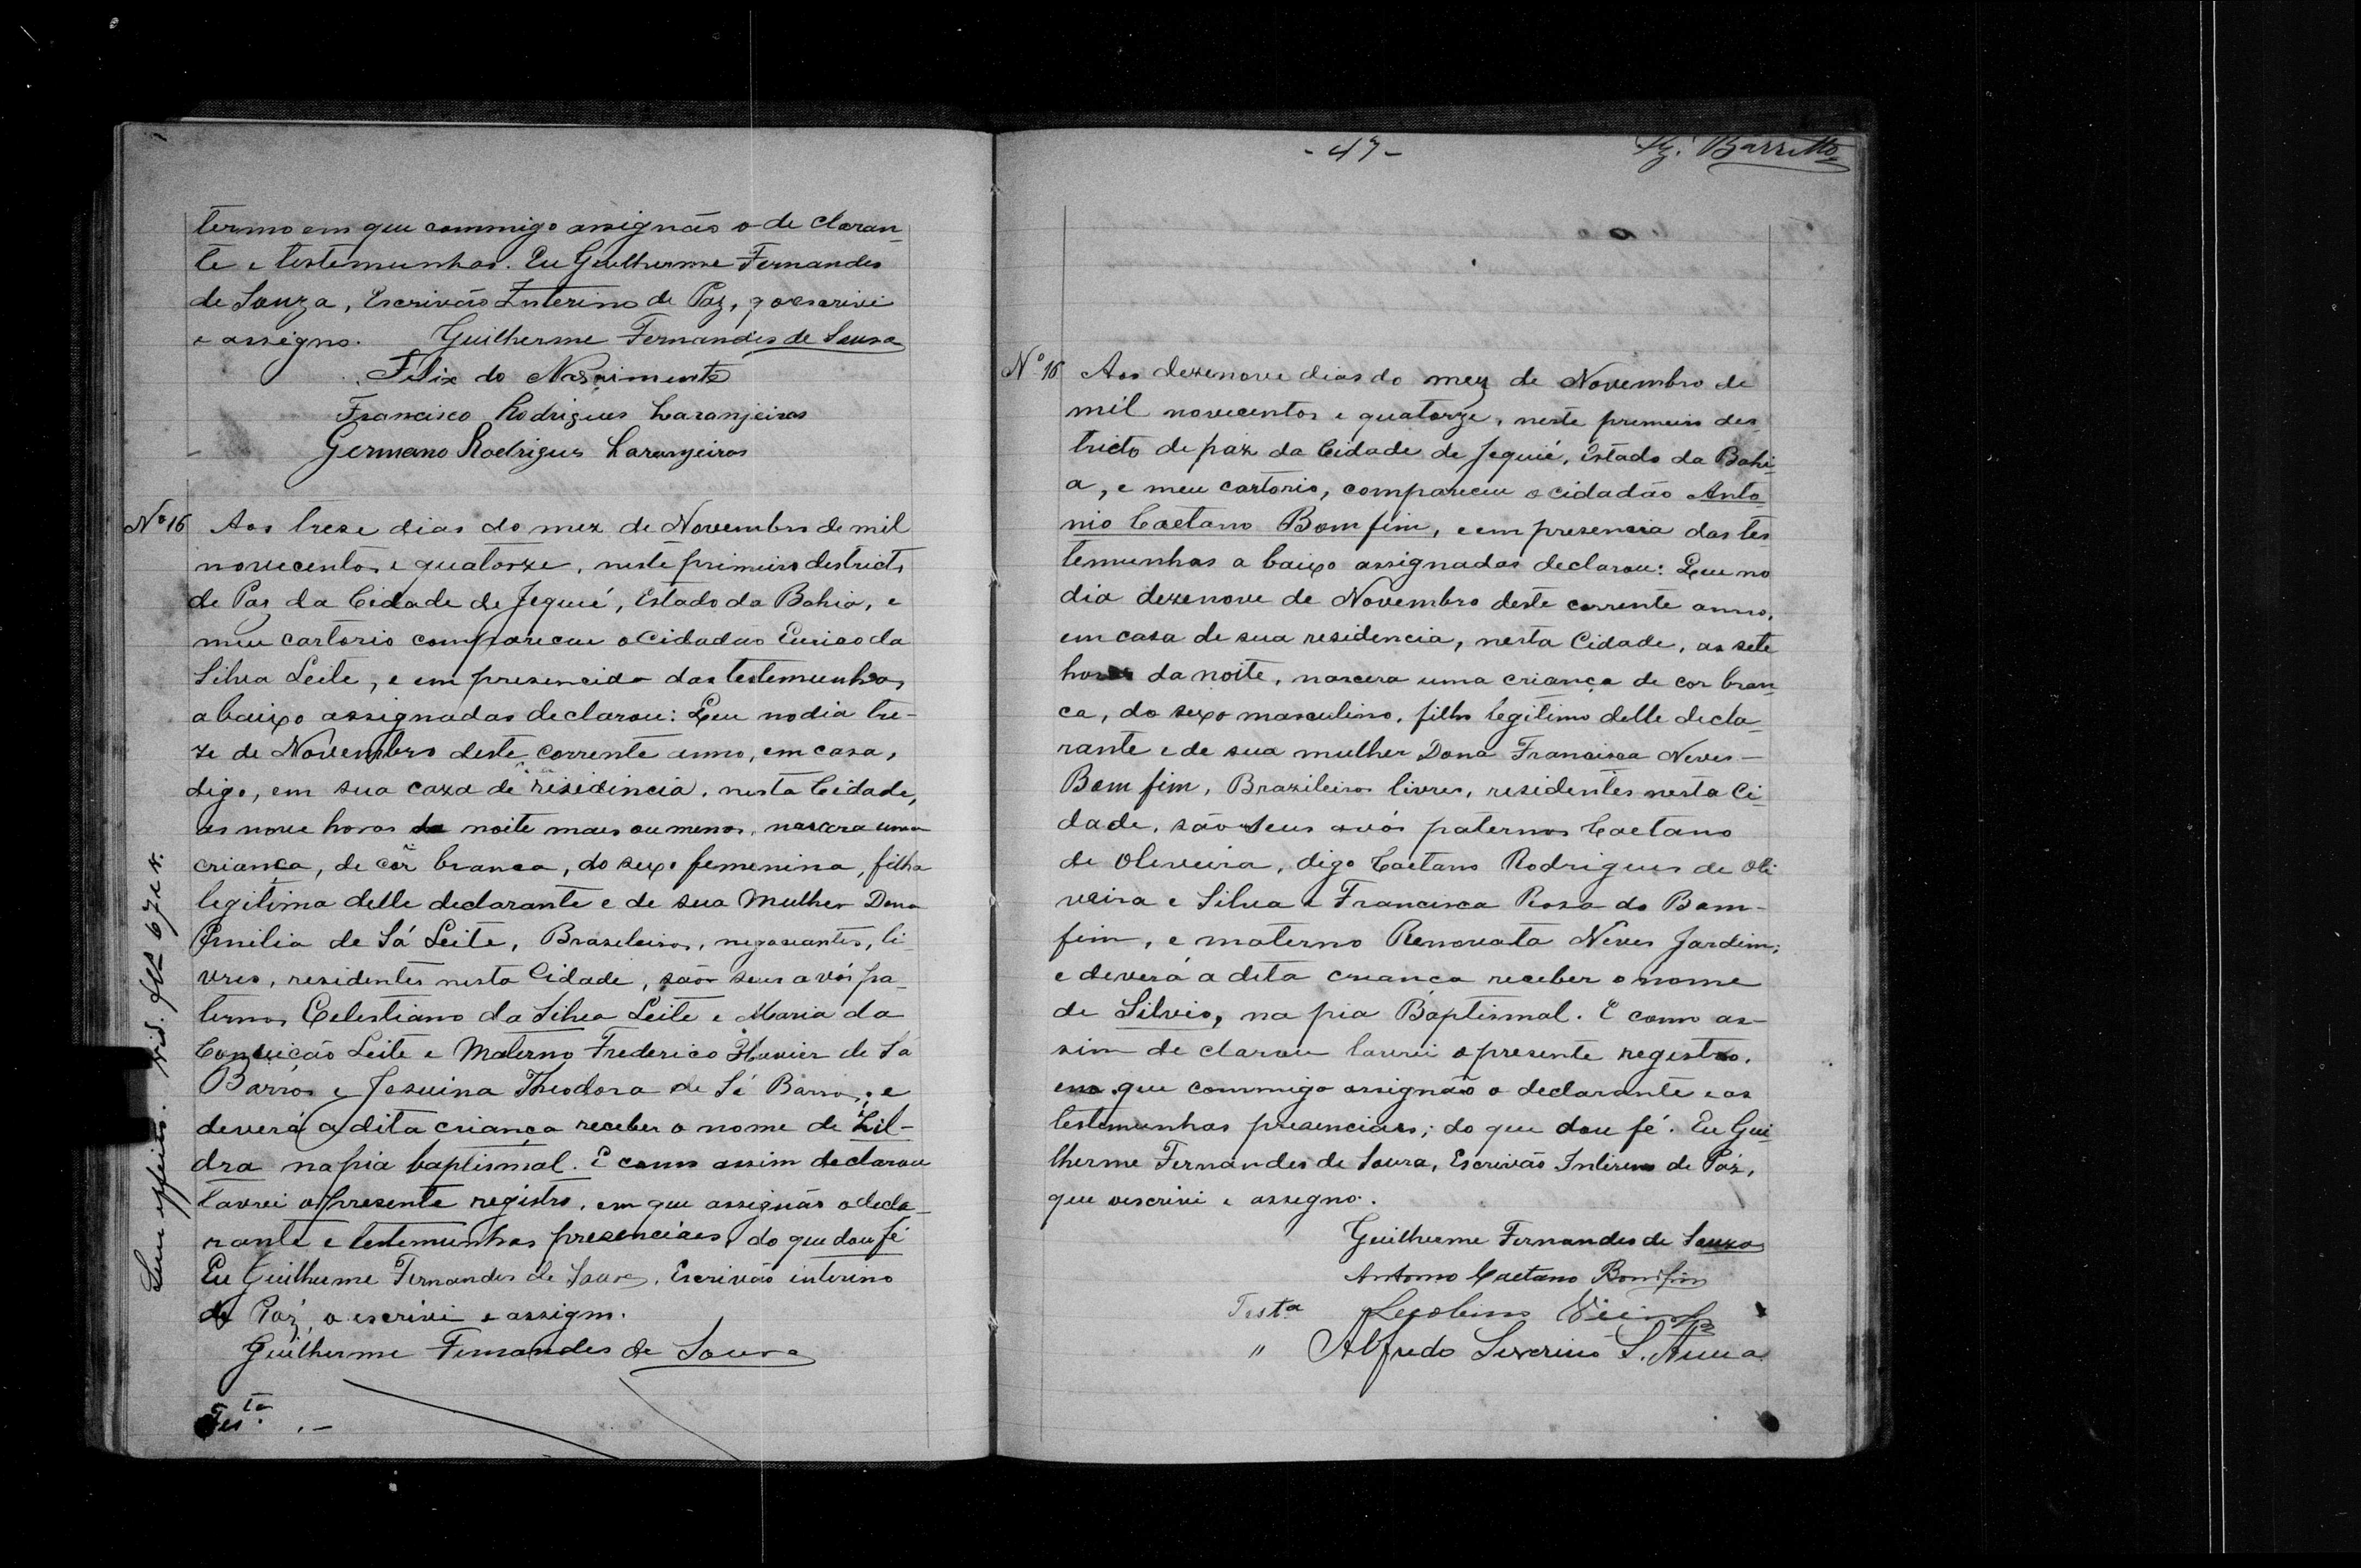 termo em que commigo assignão o de claran-
te e testemunhas. Eu Guilherme Fernandes
de Souza, Escrivão Interino de Paz, q o escrivi
e assigno. Guilherme Fernandes de Sousa
Felix do Nascimento
Francisco Rodrigues Laranjeiras
Germano Rodrigues Laranjeiras
Nº 16 Aos trese dias do mez de Novembro de mil
novecentos e quatorze, neste primeiro districto
de Paz da Cidade de Jequié, Estado da Bahia, e
meu cartorio compareceu o Cidadão Eurico da
Silva Leite, e em presencida das testemunhas,
abaixo assignadas declarou: Que no dia tre-
ze de Novembro deste corrente anno, em casa,
digo, em sua caza de risidincia, nesta Cidade,
as nove horas da noite mais ou menos, nascera uma
criança, de côr branca, do sexo femenina, filha
legitima delle declarante e de sua Mulher Dona
Emilia de Sá Leite, Brasileiros, negociantes, li-
vres, residentes nesta Cidade, são seus avós pa-
ternos Celestiano da Silva Leite e Maria da
Conceição Leite e Materno Frederico Xavier de Sá
Barros e Jesuina Theodora de Sá Barros; e
deverá a dita criança receber o nome de Zil-
dra na pia baptismal. E como assim declarou
lavrei o presente registro, em que assignão o decla-
rante e testemunhas presenciaes, do que dou fé
Eu Guilherme Fernandes de Sousa, Escrivão interino
de Paz, o escrivi e assigno.
Guilherme Fernandes de Sousa
Testa. . –
Sem effeito. vid. fls 67 e v.
- 47 - Barretto
Nº 16 Aos dezenove dias do mez de Novembro de
mil novecentos e quatorze, neste primeiro des-
tricto de paz da Cidade de Jequié, Estado da Bahi-
a, e meu cartorio, compareceu o cidadão Anto-
nio Caetano Bomfim, e em presencia das tes-
temunhas a baixo assignadas declarou: Que no
dia dezenove de Novembro deste corrente anno,
em casa de sua residencia, nesta Cidade, as sete
horas da noite, nascera uma criança de cor bran-
ca, do sexo masculino, filho legitimo delle decla-
rante e de sua mulher Dona Francisca Neves –
Bom fim, Brazileiros livres, residentes nesta Ci-
dade, são seus avós paternos Caetano
de Oliveira, digo Caetano Rodrigues de Oli-
veira e Silva e Francisca Rosa do Bom-
fim, e materno Renovata Neves Jardim;
e deverá a dita criança receber o nome
de Silvio, na pia Baptismal. E como as-
sim de clarou lavrei o presente registro,
em que commigo assignão o declarante e as
testemunhas presenciaes; do que dou fé. Eu Gui-
lherme Fernandes de Soura, Escrivão Interino de Páz,
que oescrivi e assegno.
Guilherme Fernandes de Souza
Antonio Caetano Bomfim
Testa.
" Alfredo Severino S. Anna